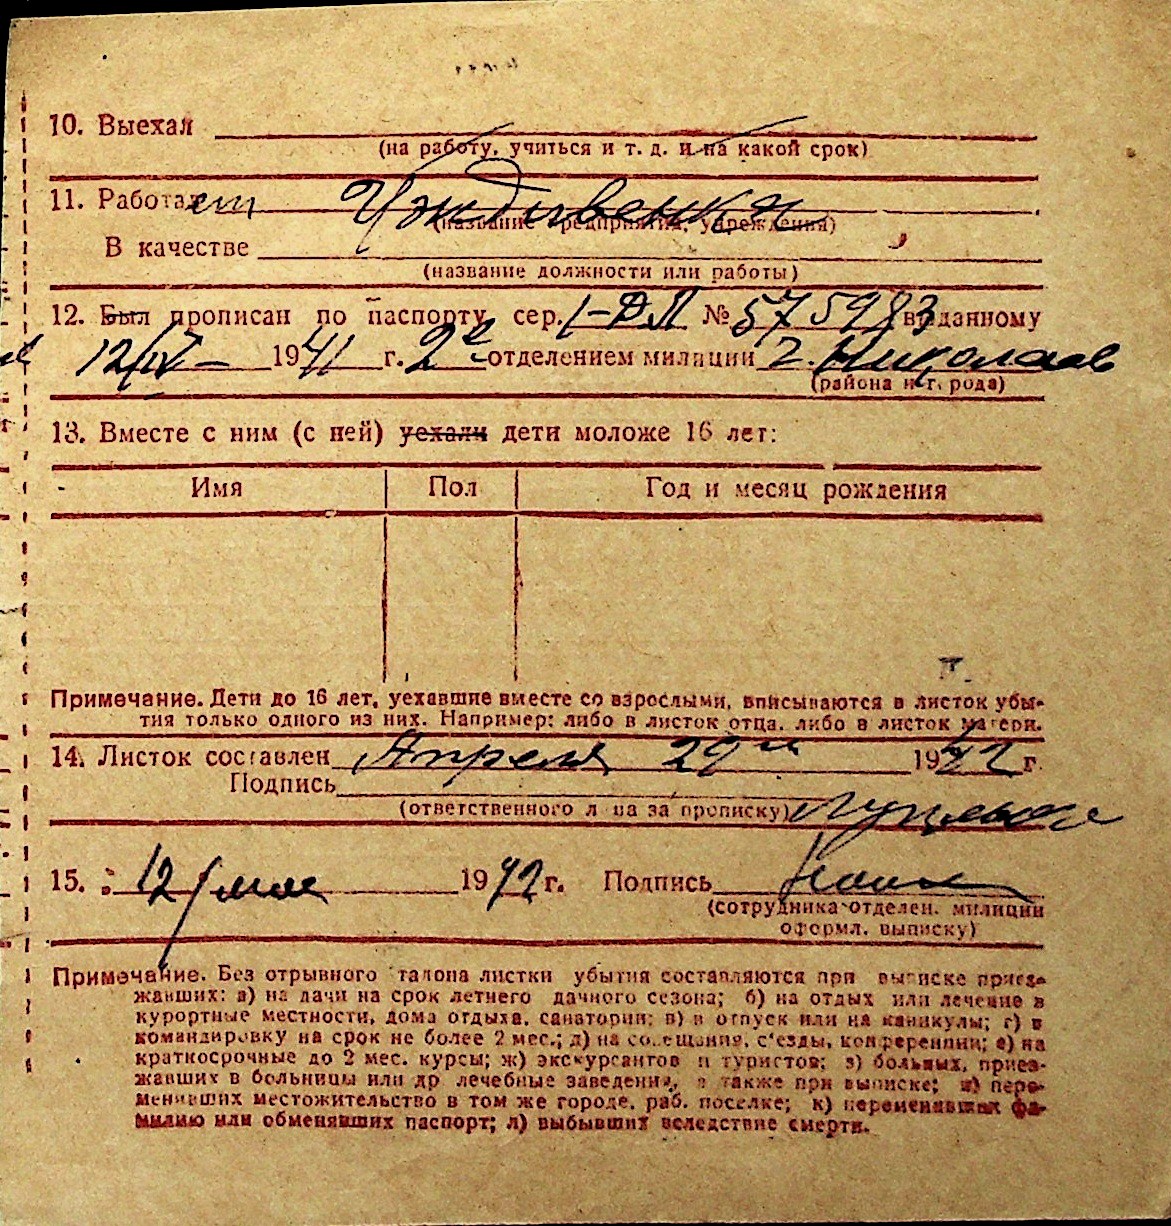 10. Выехал
(на работу, учиться и т. д. и на какой срок)
11. Работает Иждивенка
(название предприятия, учреждения)
В качестве
(название должности или работы)
12. Был прописан по паспорту сер. 1-ДЛ № 575983 выданному
12/IV- 1941 г. 2е отделением милиции г. Николаев
(района и г. рода)
13. Вместе с ним (с ней) уехали дети моложе 16 лет:
Имя Пол Год и месяц рождения
Примечание. Дети до 16 лет, уехавшие вместе со взрослыми, вписываются в листок убы-
тия только одного из них. Например: либо в листок отца, либо в листок матери.
14. Листок составлен Апреля 29 1942 г.
Подпись
(ответственного л ца за прописку)
15. 12 мая 1942 г. Подпись
(сотрудника отделен. милиции
оформл. выписку)
Примечание. Без отрывного талона листки убытия составляются при выписке приез-
жавших: а) на дачи на срок летнего дачного сезона; б) на отдых или лечение в
курортные местности, дома отдыха, санатории; в) в отпуск или на каникулы; г) в
командировку на срок не более 2 мес.; д) на совещания, с'езды, конференции; е) на
краткосрочные до 2 мес. курсы; ж) экскурсантов и туристов; з) больных, приез-
жавших в больницы или др лечебные заведения, а также при выписке; и) пере-
менивших местожительство в том же городе, раб. поселке; к) переменивших фа-
милию или обменявших паспорт; л) выбывших вследствие смерти.